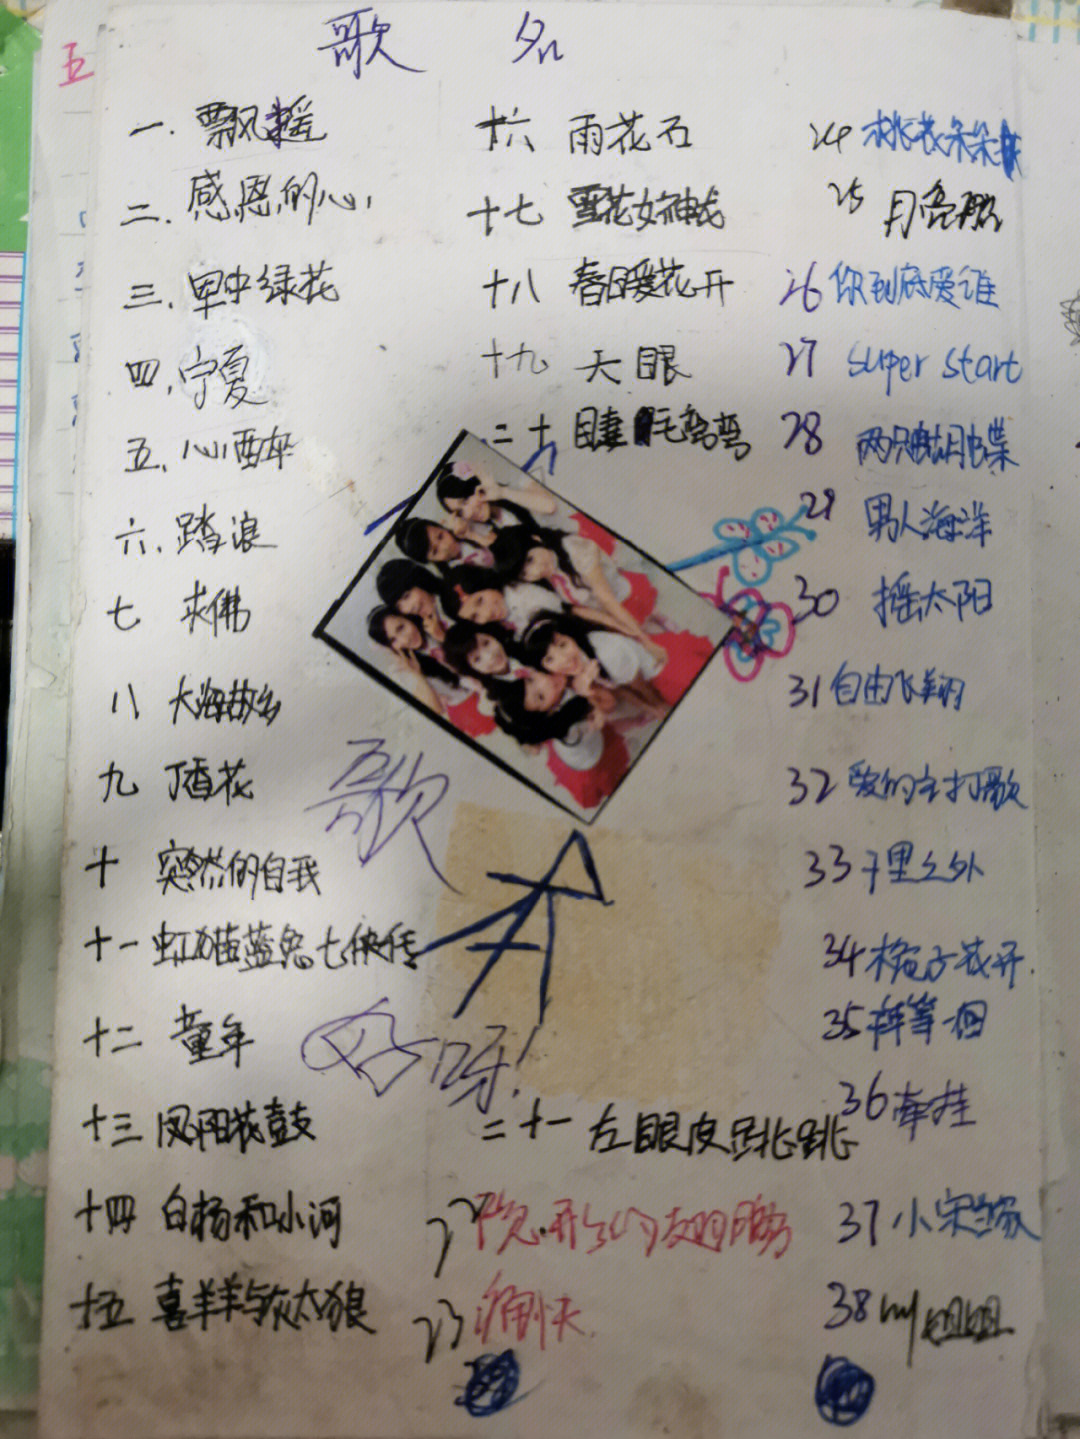 五
歌 名
一. 飘摇
二. 感恩的心
三. 军中绿花
四. 宁夏
五. 心醉
六. 踏浪
七 求佛
八 大海故乡
九 丁香花
十 突然的自我
十一 虹猫蓝兔七侠传
十二 童年
十三 凤阳花鼓
十四 白杨和小河
十五 喜羊羊与灰太狼
十六 雨花石
十七 雪花女神龙
十八 春日暖花开
十九 天眼
二十 睫毛弯弯
歌
好呀!
二十一 左眼皮跳跳
22
23
24 桃花朵朵
25 月亮
26 你到底爱谁
27 super start
28 两只蝴蝶
29 男人海洋
30 摇太阳
31 自由飞翔
32 爱的主打歌
33 千里之外
34 栀子花开
35
36 牵挂
37 小宋当家
38 my 姐姐